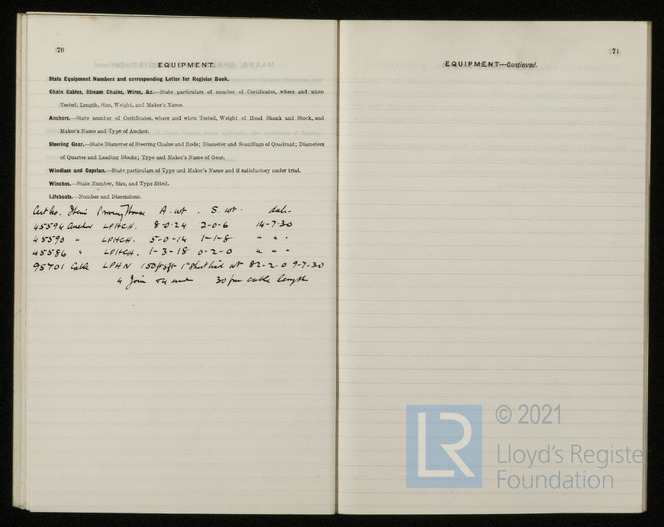 70
EQUIPMENT.
State Equipment Numbers and corresponding Letter for Register Book.
Chain Cables, Stream Chains, Wires, &c.—State particulars of number of Certificates, where and when
Tested, Length, Size, Weight, and Maker's Name.
Anchors.—State number of Certificates, where and when Tested, Weight of Head Shank and Stock, and
Maker's Name and Type of Anchor.
Steering Gear.—State Diameter of Steering Chains and Rods; Diameter and Scantlings of Quadrant; Diameters
of Quarter and Leading Blocks; Type and Maker's Name of Gear.
Windlass and Capstan.—State particulars of Type and Maker's Name and if satisfactory under trial.
Winches.—State Number, Size, and Type fitted.
Lifeboats.—Number and Dimensions.
Cert No. Item Proving House A. wt. S. wt. date
45594 Anchor LPHCH. 8-0-24 2-0-6 14-7-30
45590 " LPHCH. 5-0-14 1-1-8 " " "
45586 " LPHCH. 1-3-18 0-2-0 " " "
95701 Cable LPHN 150 1" link wt 82-2-0 9-7-30
4 Join 30 fm cable lengths
71
EQUIPMENT—Continued.
LR
© 2021
Lloyd's Register
Foundation